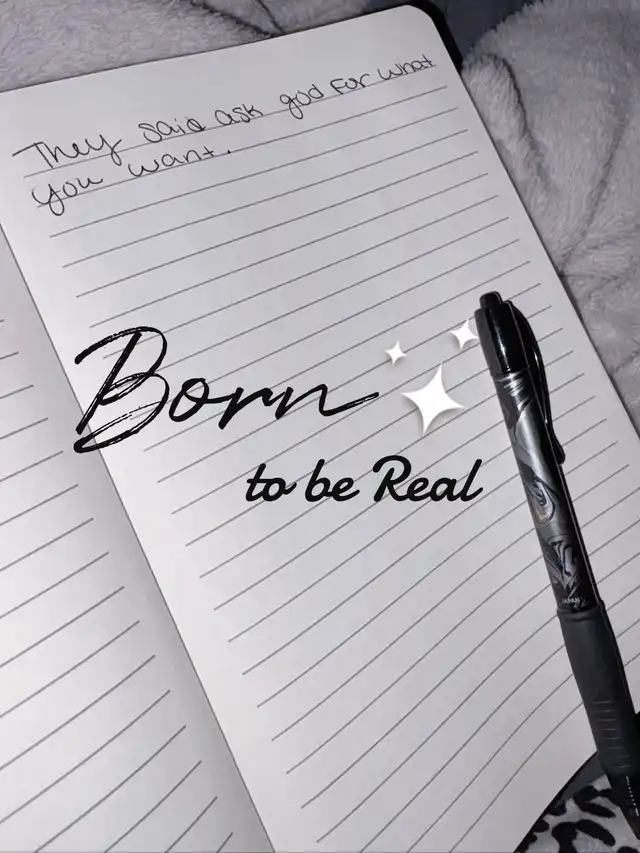 They said ask god For what
you want.
Born
to be Real
JAPAN